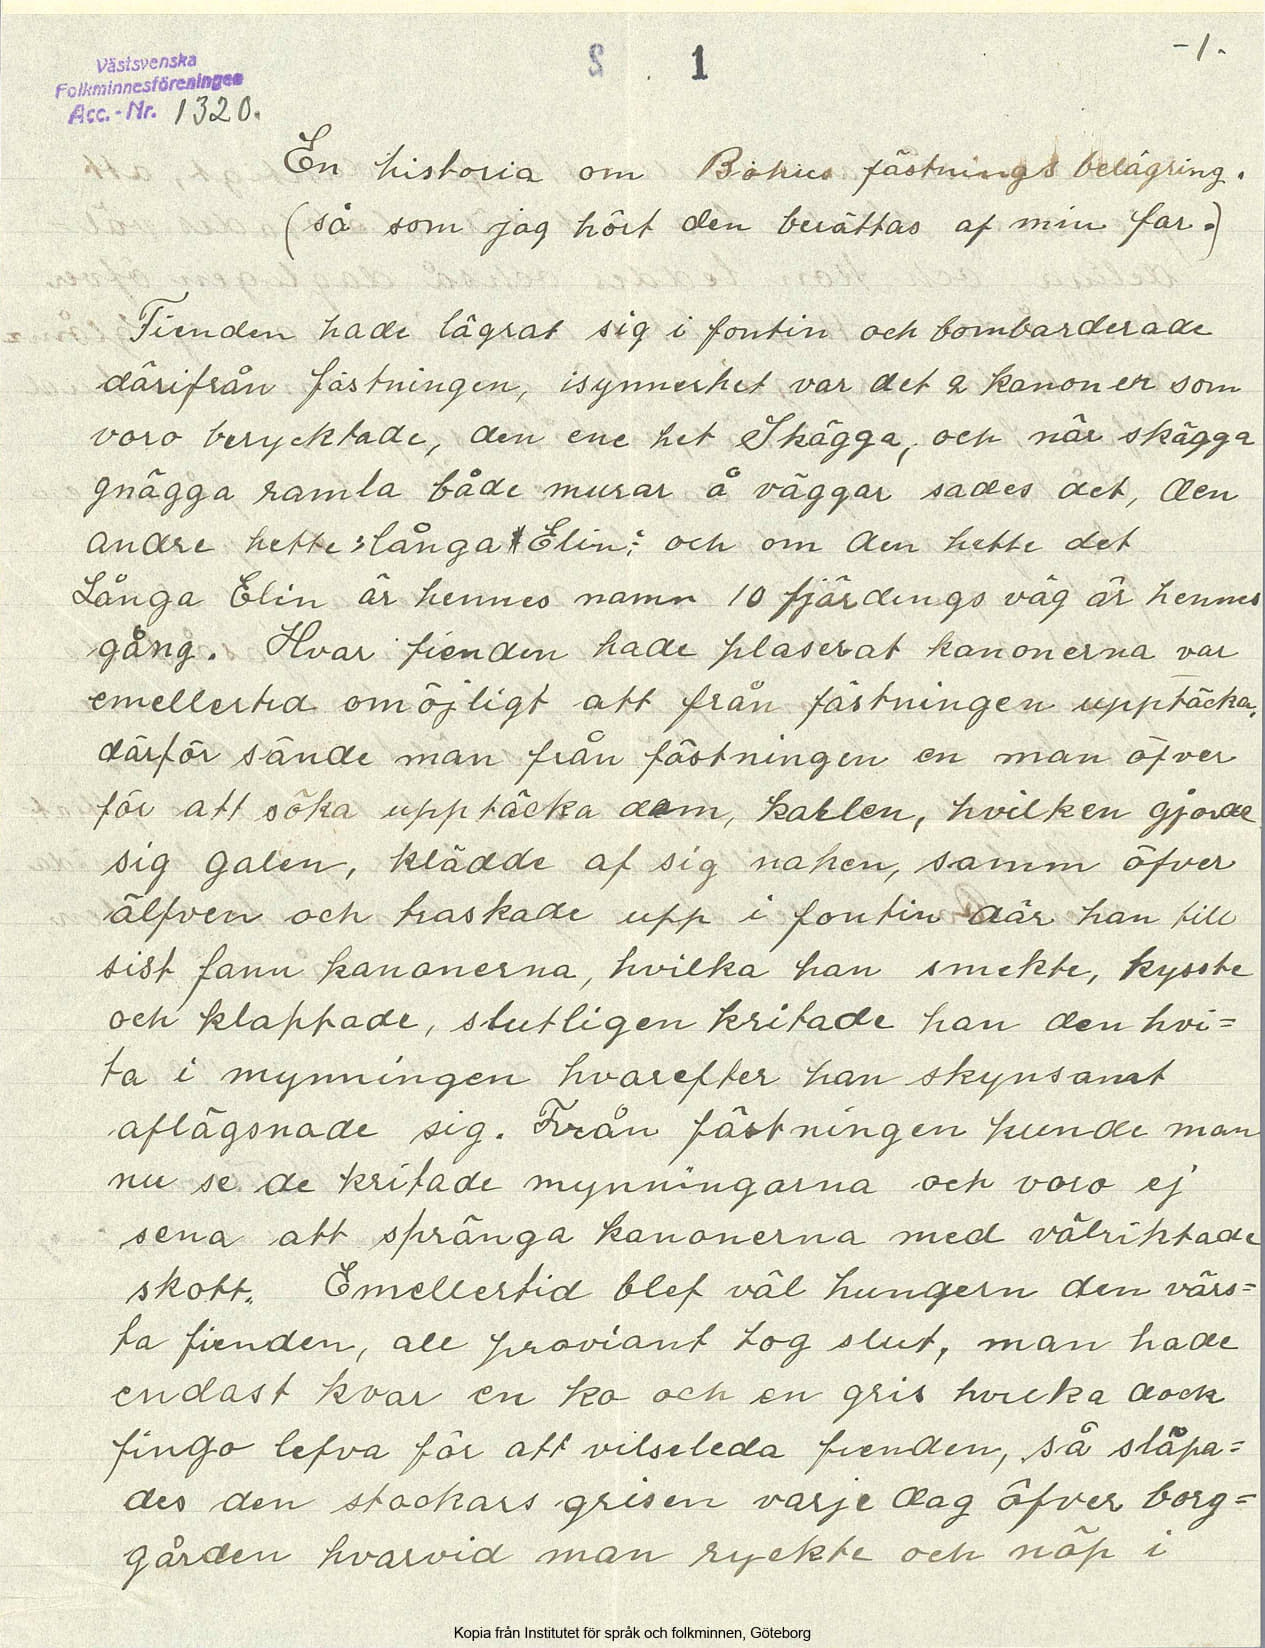 Västsvenska
Folkminnesföreningen
Acc.-Nr. 1320.
S 1
-1.
En historia om Bohus fästnings belägring.
(så som jag hört den berättas af min far.)
Fienden hade lägrat sig i fontin och bombarderade
därifrån fästningen, isynnerhet var det 2 kanoner som
voro beryktade, den ene het Skägga, och när skägga
gnägga ramla både murar å väggar sades det, den
andre hette "långa Elin" och om den hette det
Långa Elin är hennes namn 10 fjärdings väg är hennes
gång. Hvar fienden hade plaserat kanonerna var
emellertid omöjligt att från fästningen upptäcka,
därför sände man från fästningen en man öfver
för att söka upptäcka dem, karlen, hvilken gjorde
sig galen, klädde af sig naken, samm öfver
älfven och traskade upp i fontin där han till
sist fann kanonerna, hvilka han smekte, kysste
och klappade, slutligen kritade han den hvi=
ta i mynningen hvarefter han skynsamt
aflägsnade sig. Från fästningen kunde man
nu se de kritade mynningarna och voro ej
sena att spränga kanonerna med välriktade
skott. Emellertid blef väl hungern den värs=
ta fienden, all proviant tog slut, man hade
endast kvar en ko och en gris hvilka dock
fingo lefva för att vilseleda fienden, så släpa=
des den stackars grisen varje dag öfver borg=
gården hvarvid man ryckte och nöp i
Kopia från Institutet för språk och folkminnen, Göteborg